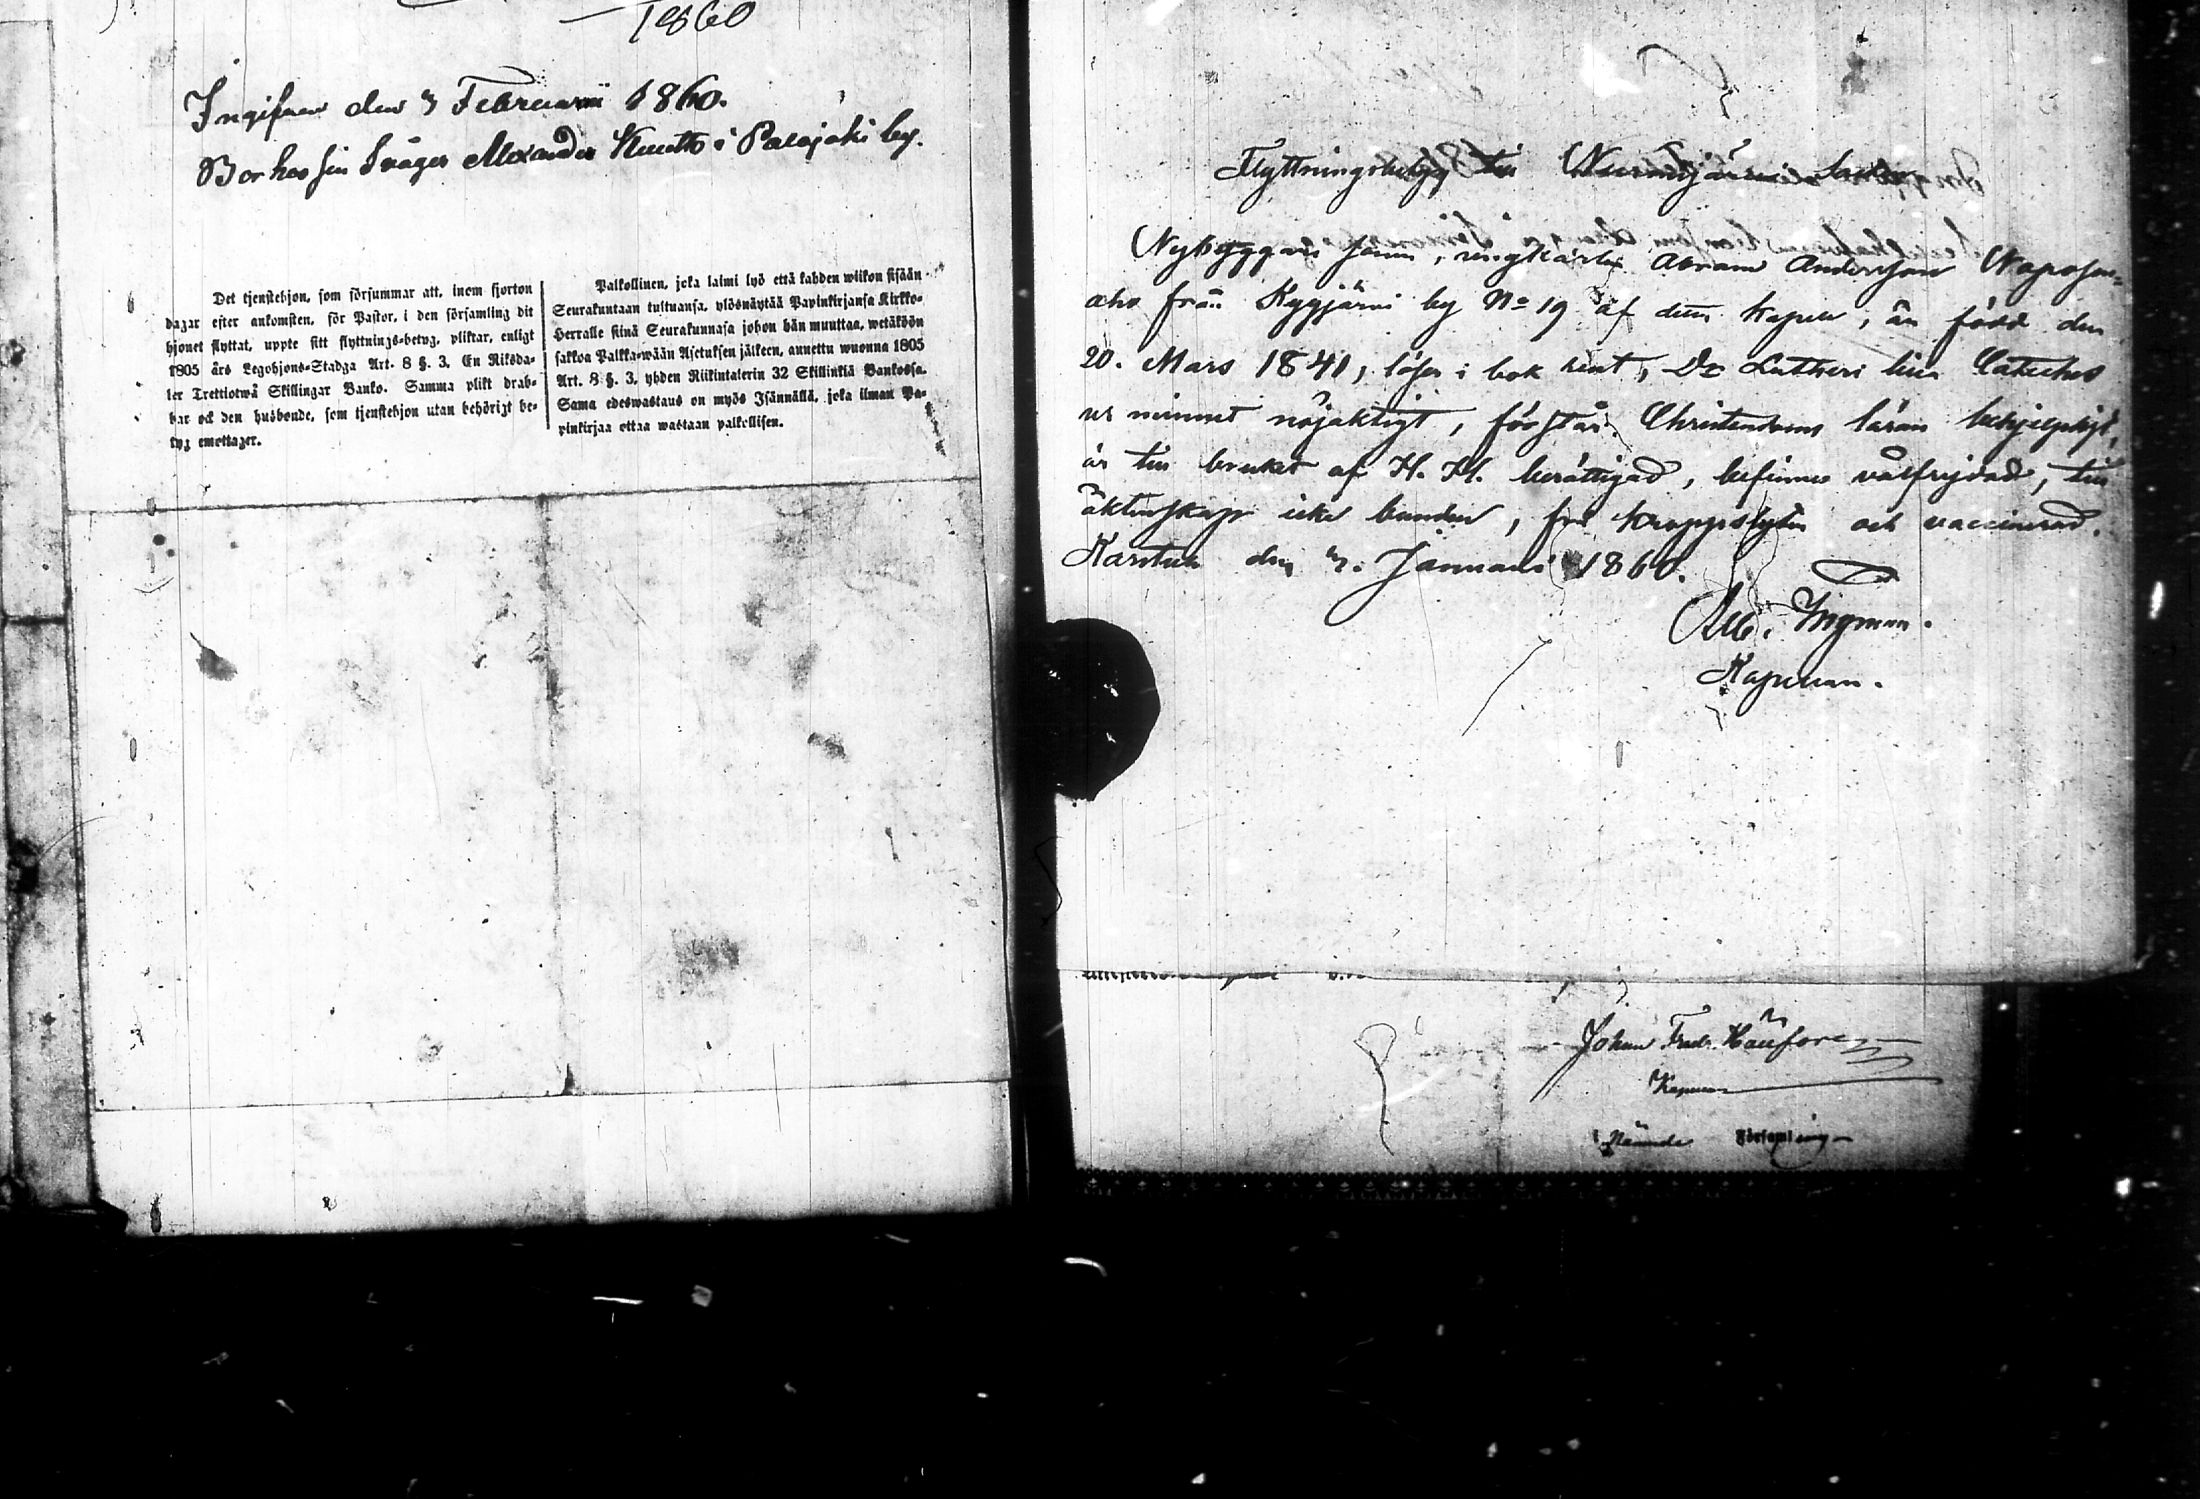 1860
Ingifven den 3 Februarii 1860.
Bor hos sin Svåger Alexander Knutts i Palojoki by.
Det tjenstehjon, som försummar att, inom fjorton
dagar efter ankomsten, för Pastor, i den församling dit
hjonet flyttat, uppte sitt flyttnings-betyg, pliktar, enligt
1805 års Legohjons-Stadga Art. 8 §. 3. En Riksda-
ler Trettiotwå Skillingar Banko. Samma plikt drab-
bar ock den husbonde, som tjenstehjon utan behörigt be-
tyg emottager.
Palkollinen, joka laimi lyö että kahden wiikon sisään
Seurakuntaan tultuansa, ylösnäytää Papinkirjansa Kirkko-
Herralle siinä Seurakunnasa johon hän muuttaa, wetäköön
sakkoa Palkka-wään Asetuksen jälkeen, annettu wuonna 1805
Art. 8 §. 3, yhden Riikintalerin 32 Skillinkiä Bankossa.
Sama edeswastaus on myös Isännällä, joka ilman Pa-
pinkirjaa ottaa wastaan palkollisen.
Flyttningsbetyg till Nurmijärvi Socken
Nybyggare Sonen, ynglingen Abram Andersson Naposen-
aho från Kyyjärvi by No 19 af detta Kapell, är född den
20. Mars 1841, läser i bok rent, Dr Lutheri lilla Cateches
ur minnet nöjaktigt, förstår Christendoms läran behjelpligt,
är till bruket af H. H. berättigad, befinnes välfrejdad, till
äktenskap icke bunden, fri kroppslyten och vaccinerad.
Karstula den 3. Januarii 1860.
Alb. Ingman.
Kapellan.
Johan Fredr.
Kapellan
Nämnde Församling